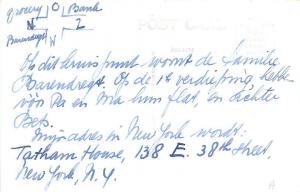 grocery O Bank
N Z
Barendregt
Op dit kruispunt woont de familie
Barendregt. Op de 1e verdieping hebben
vóór Pa en Ma hun flat, en Achter
Bep.
Mijn adres in New York wordt:
Tatham House, 138 E. 38th Street,
New York, N.Y.
POST CARD